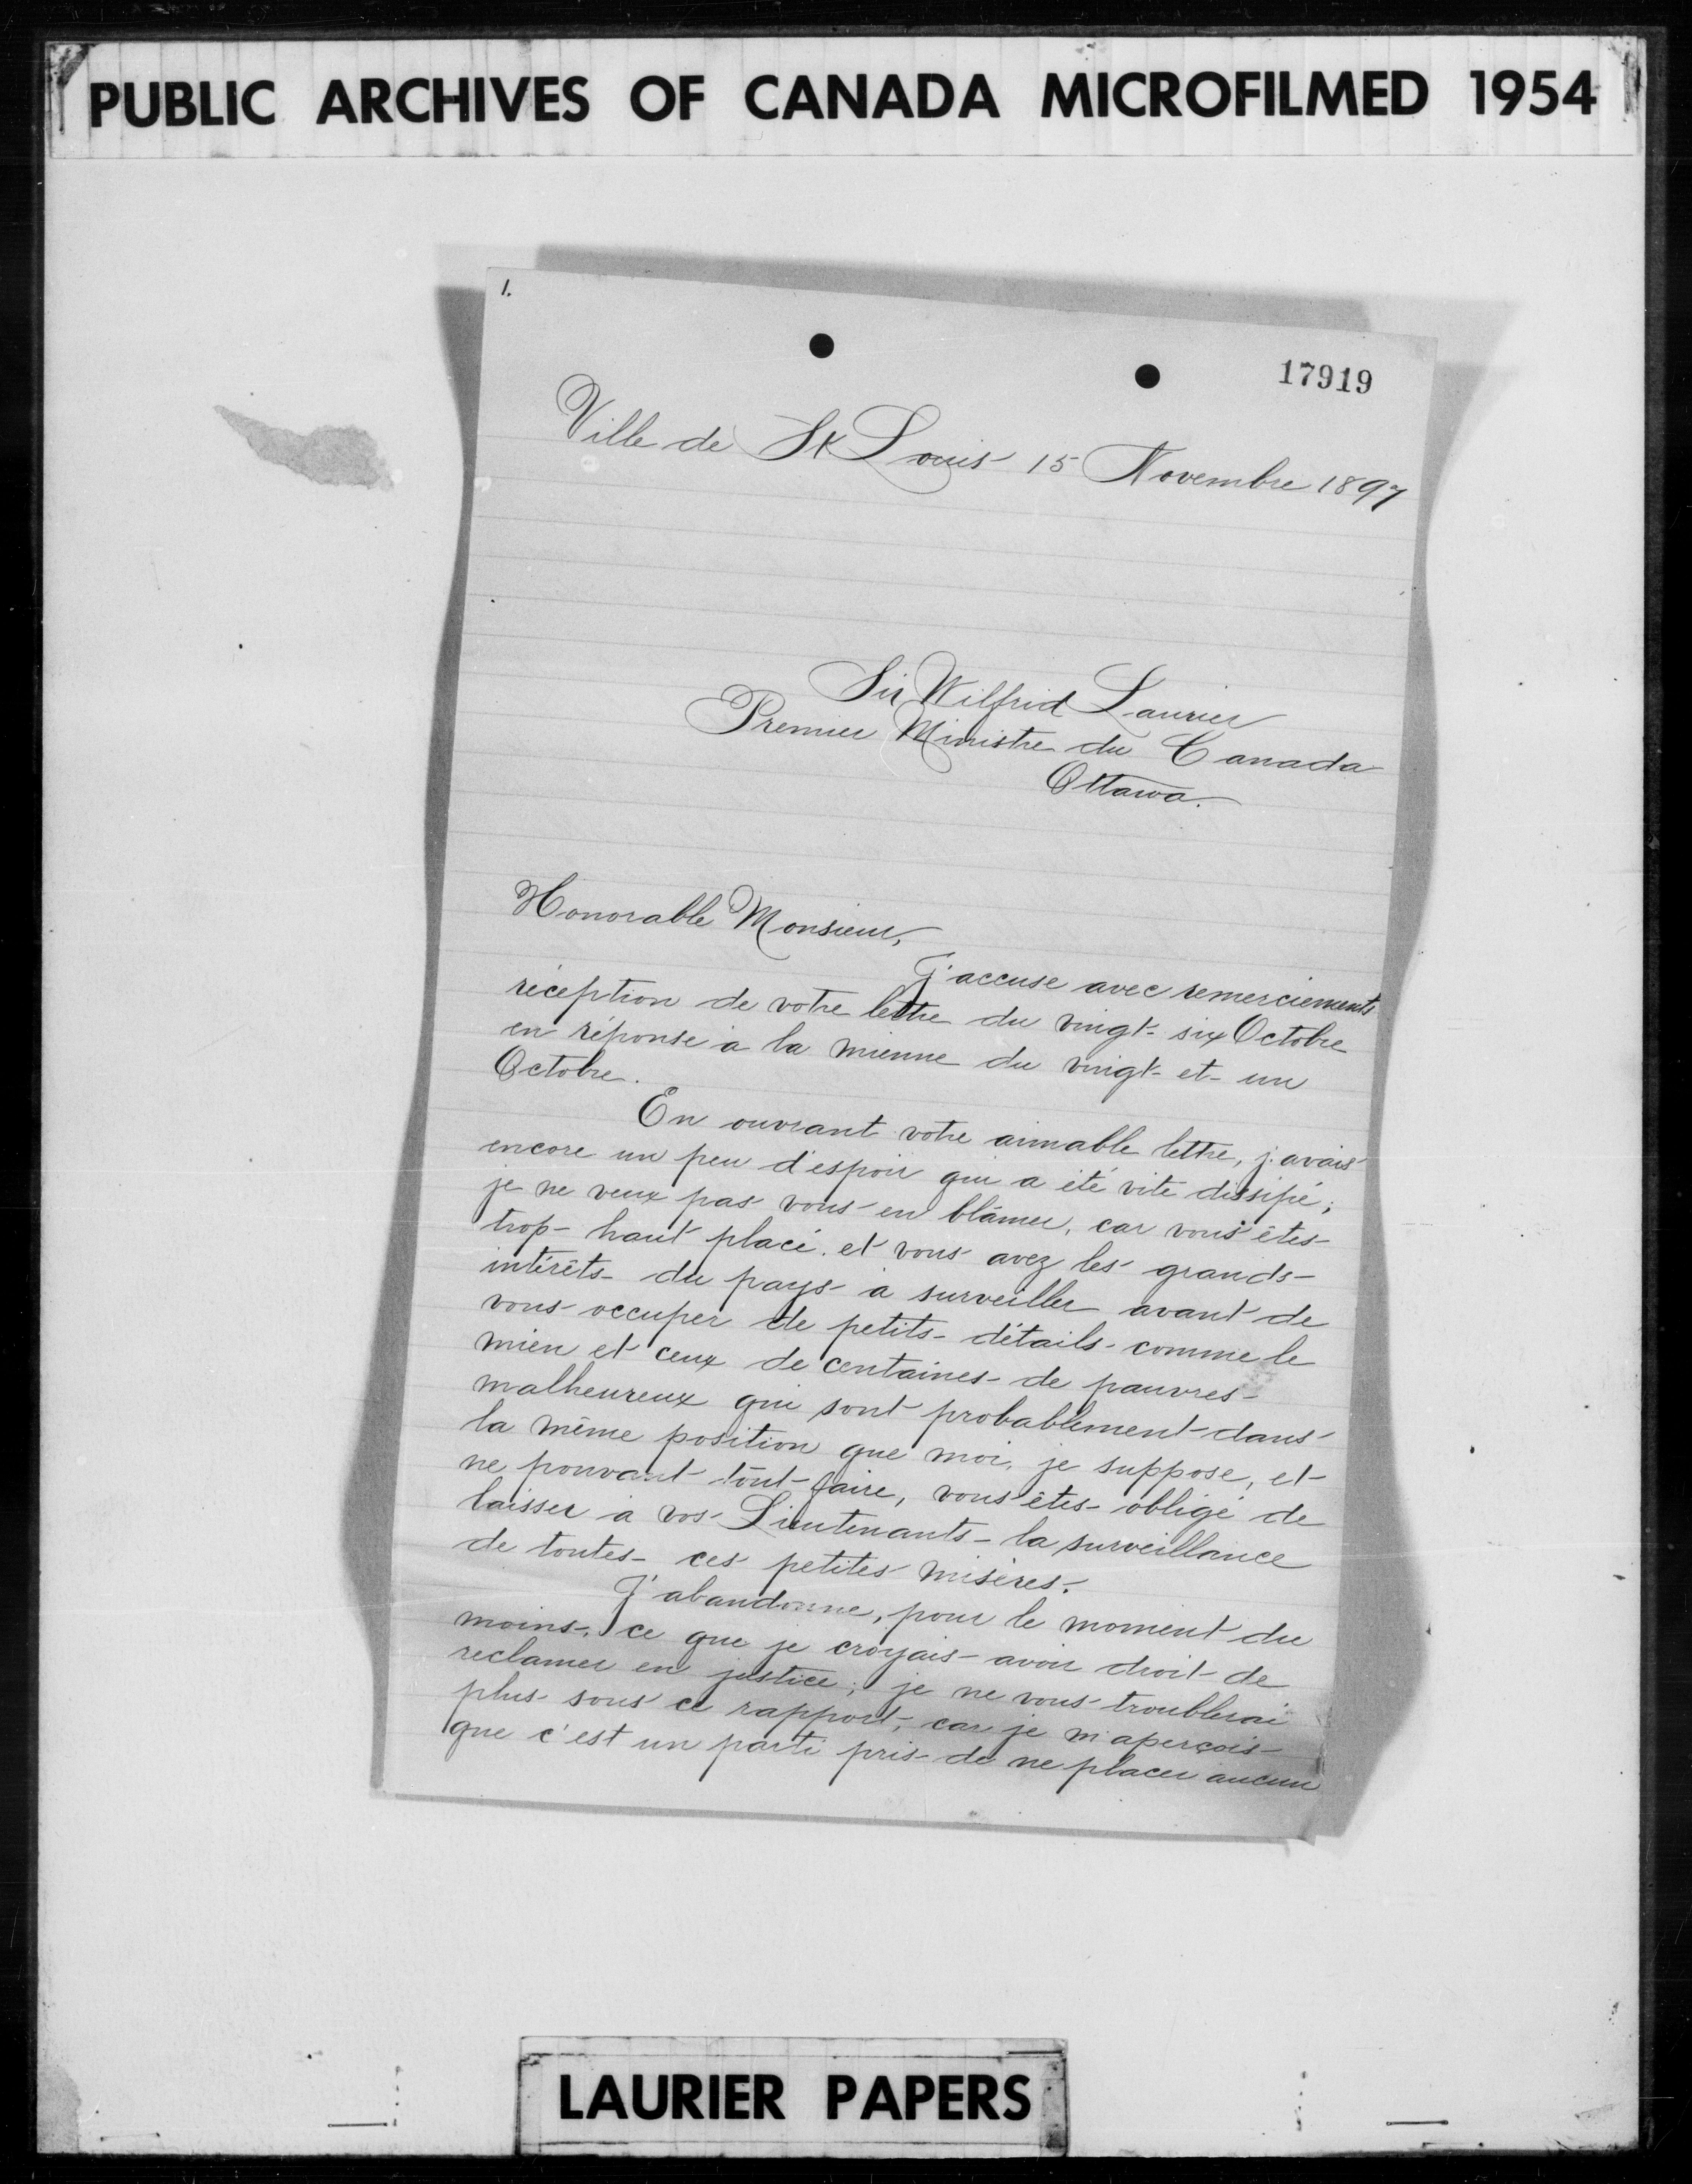 PUBLIC ARCHIVES OF CANADA MICROFILMED 1954
1.
17919
Ville de St Louis 15 Novembre 1897
Sir Wilfrid Laurier
Premier Ministre du Canada
Ottawa.
Honorable Monsieur,
J'accuse avec remerciements
réception de votre lettre du vingt-six Octobre
en réponse à la mienne du vingt-et-un
Octobre.
En ouvrant votre aimable lettre, j'avais
encore un peu d'espoir qui a été vite dissipé;
je ne veux pas vous en blâmer, car vous êtes
trop haut placé et vous avez les grands
intérêts du pays à surveiller avant de
vous occuper de petits détails comme le
mien et ceux de centaines de pauvres
malheureux qui sont probablement dans
la même position que moi, je suppose, et
ne pouvant tout faire, vous êtes obligé de
laisser à vos Lieutenants la surveillance
de toutes ces petites misères.
J'abandonne, pour le moment du
moins, ce que je croyais avoir droit de
reclamer en justice; je ne vous troublerai
plus sous ce rapport, car je m'aperçois
que c'est un parti pris de ne placer aucun
LAURIER PAPERS